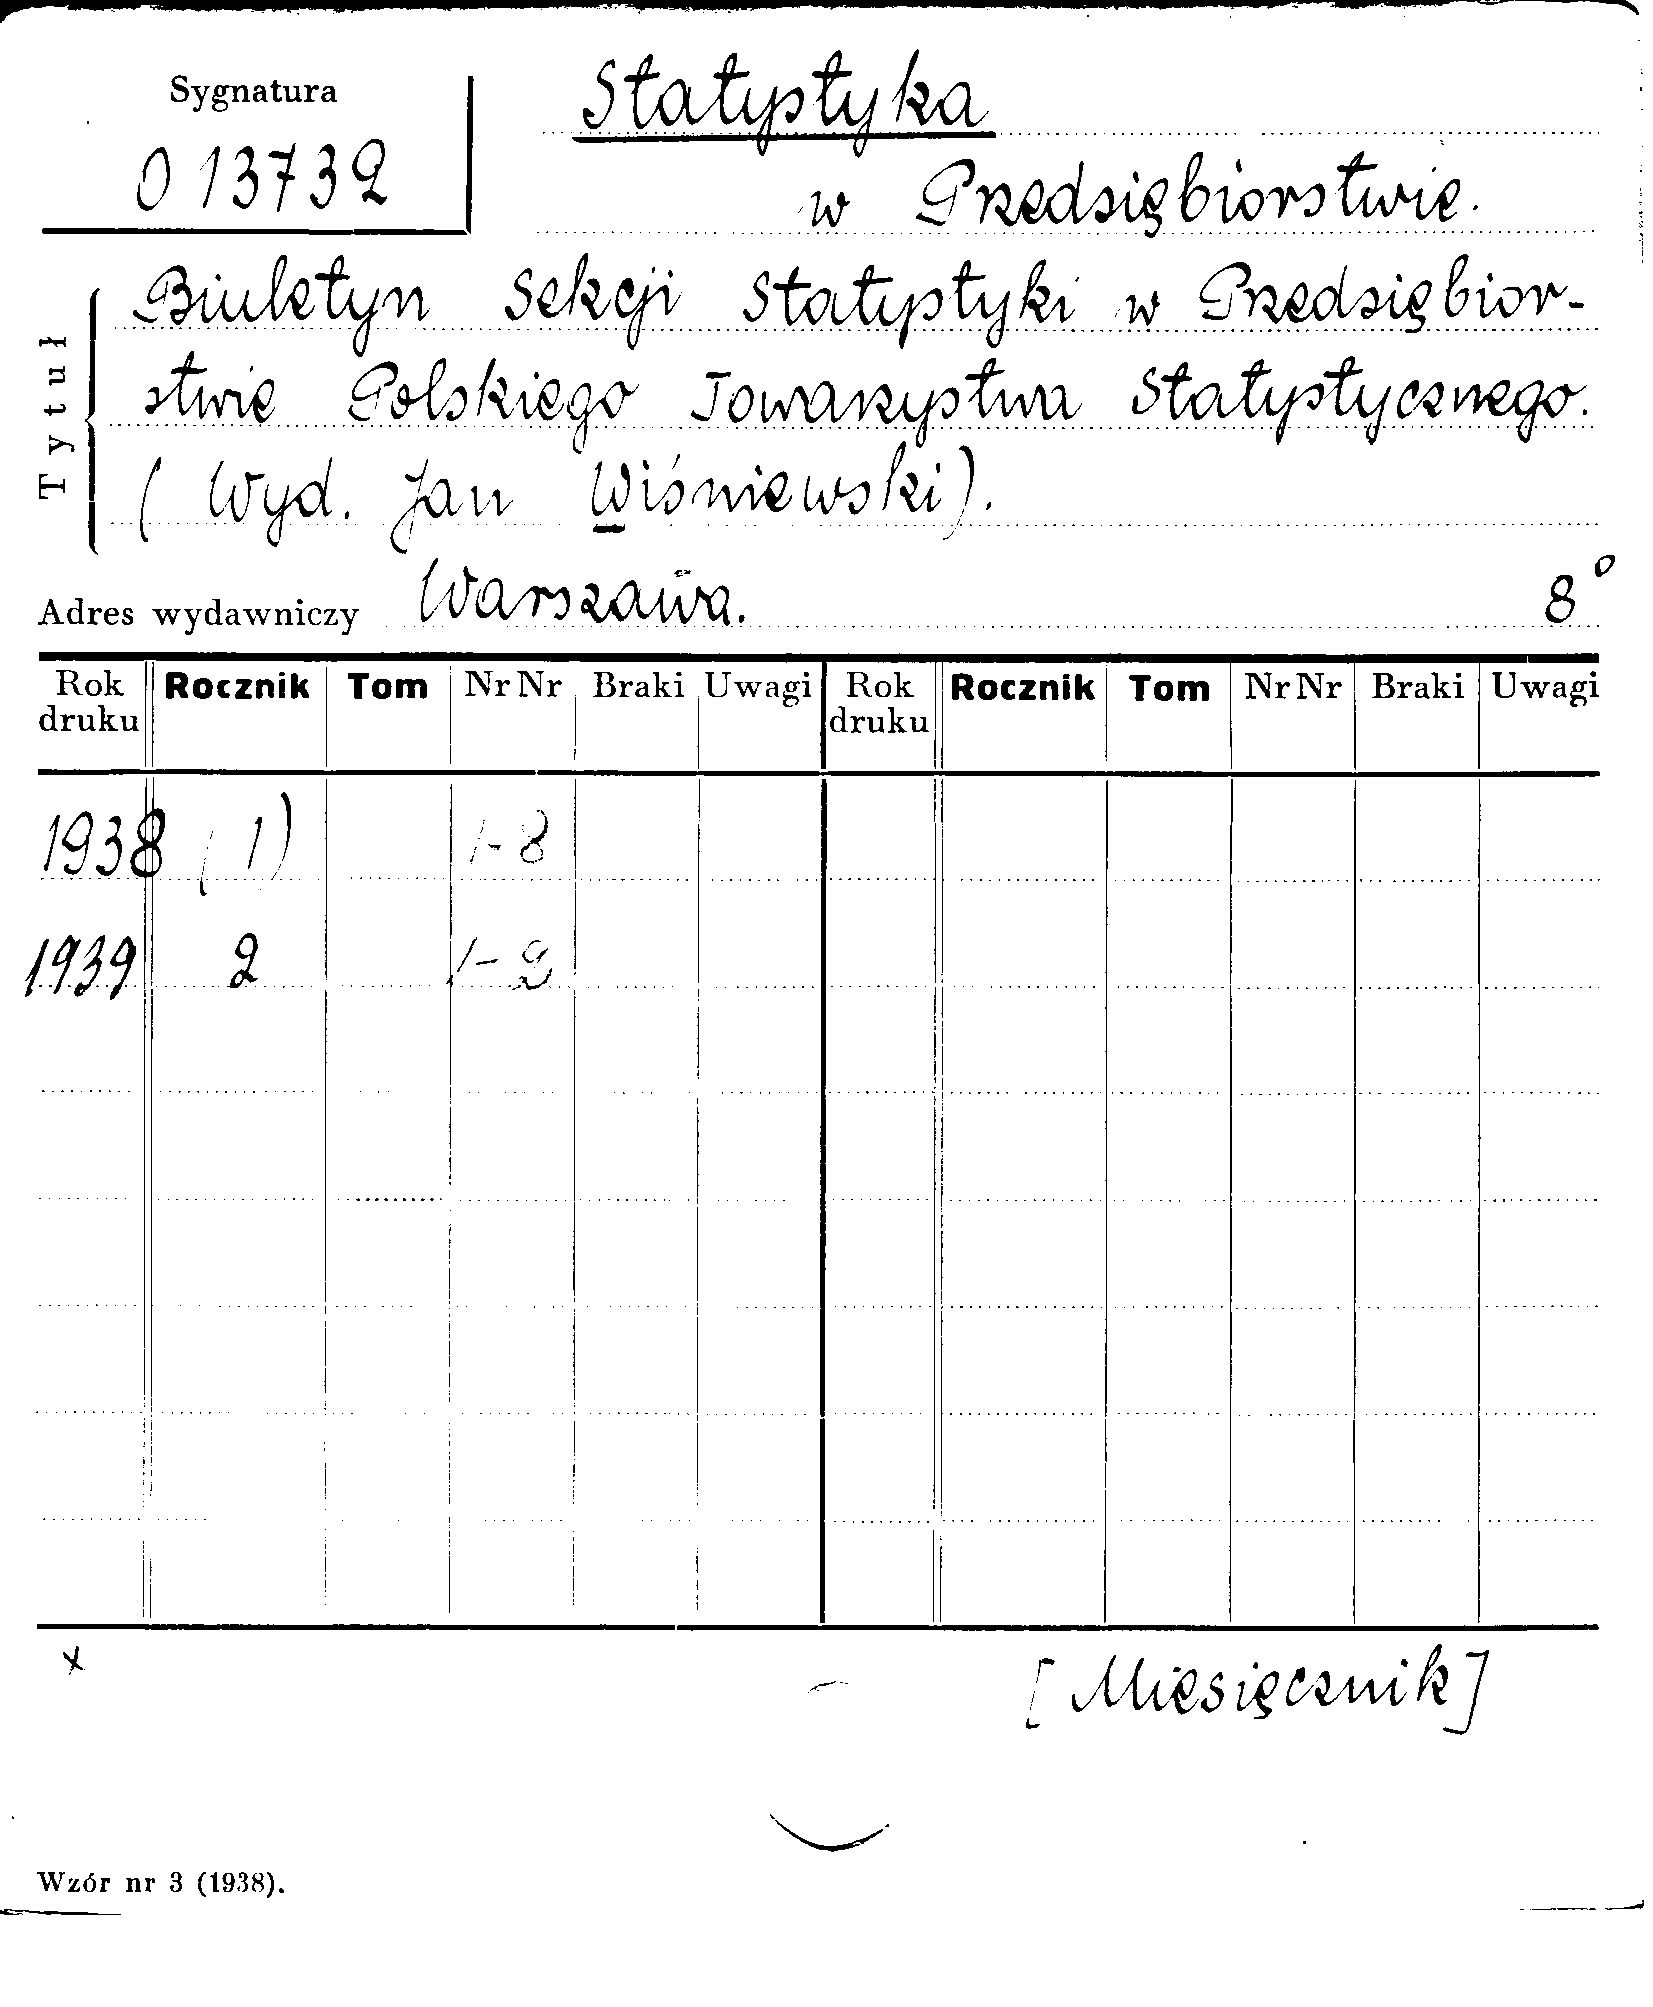 Sygnatura
Statystyka
0 13732
w Przedsiębiorstwie.
Tytuł
Biuletyn Sekcji Statystyki w Przedsiębior-
stwie Polskiego Towarzystwa Statystycznego.
(Wyd. Jan Wiśniewski).
Adres wydawniczy Warszawa. 8°
Rok druku Rocznik Tom Nr Nr Braki Uwagi Rok druku Rocznik Tom Nr Nr Braki Uwagi
1938 (1) 1-8
1939 2 1-2
x
[Miesięcznik]
Wzór nr 3 (1938).